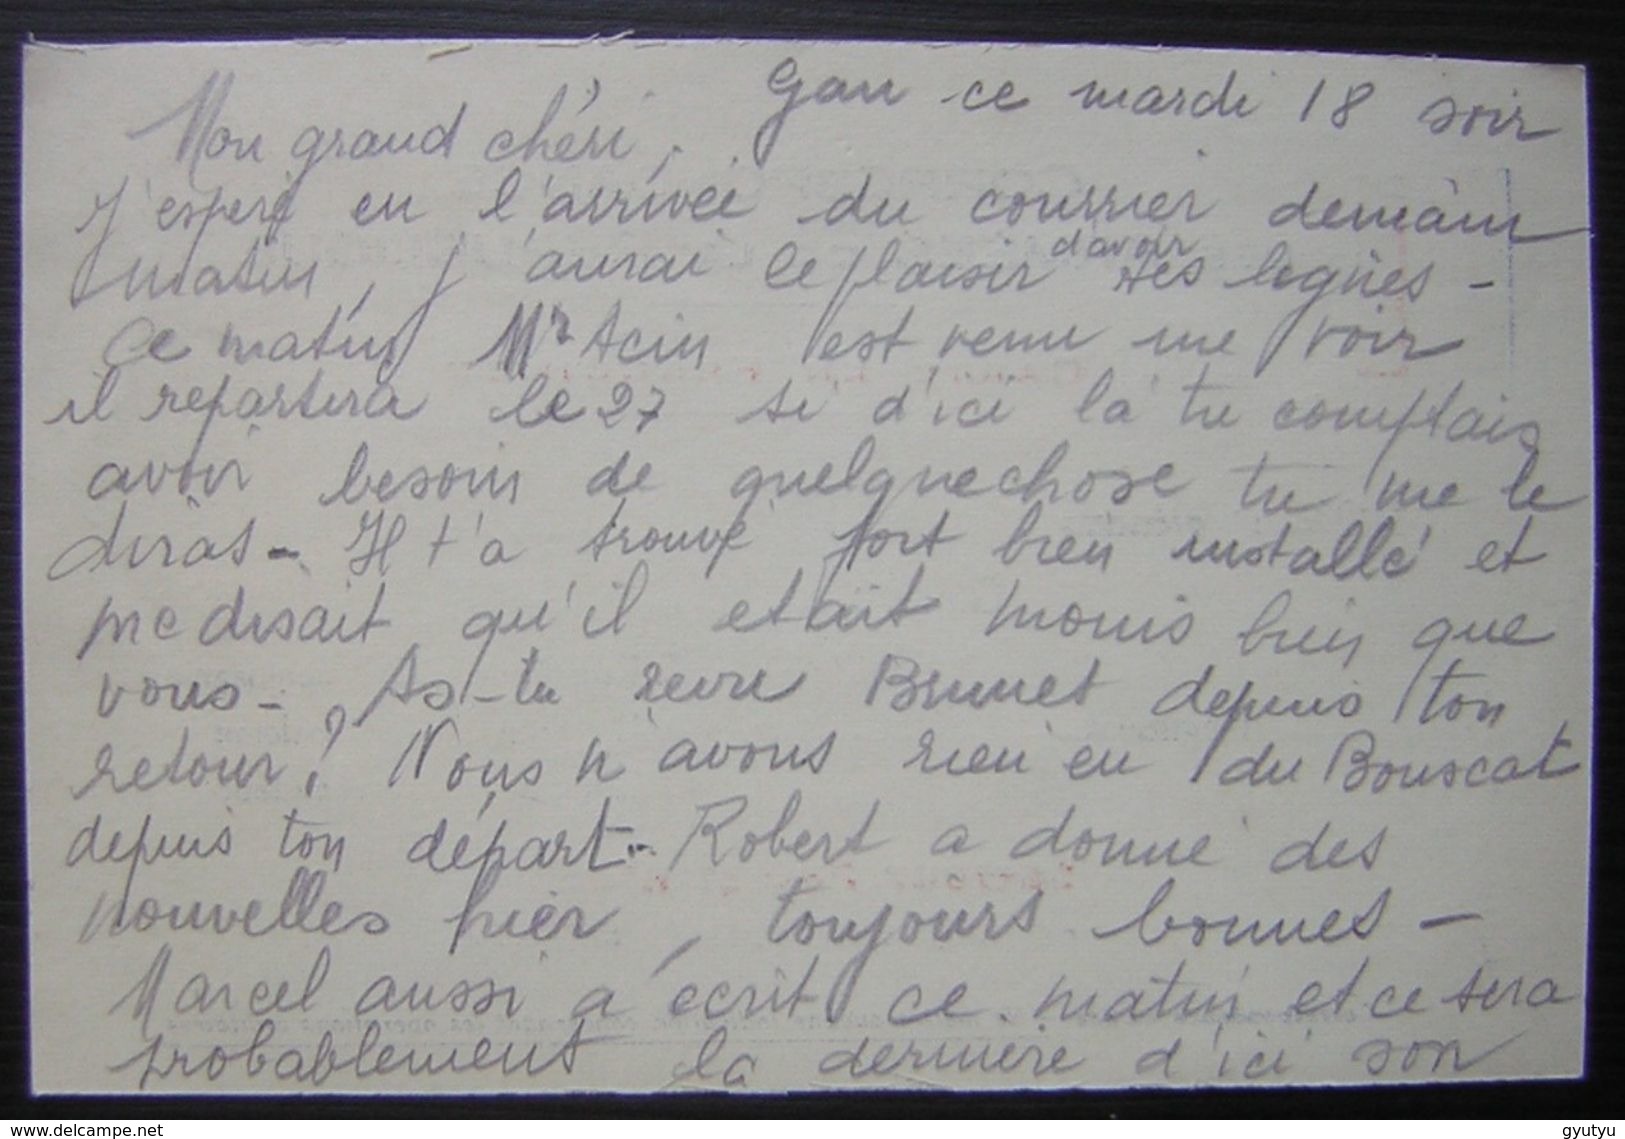 Gan ce mardi 18 soir
Mon grand chéri,
J'espère en l'arrivée du courrier demain
matin, j'aurai le plaisir d'avoir tes lignes -
Ce matin Mr Acin est venu me voir
il repartira le 27 si d'ici là tu comptais
avoir besoin de quelquechose tu me le
diras - Il t'a trouvé fort bien installé et
me disait qu'il etait moins bien que
vous - As-tu revu Brunet depuis ton
retour ? Nous n'avons rien eu du Bouscat
depuis ton départ - Robert a donné des
nouvelles hier, toujours bonnes -
Marcel aussi a écrit ce matin et ce sera
probablement la dernière d'ici son
www.delcampe.net
gyutyu